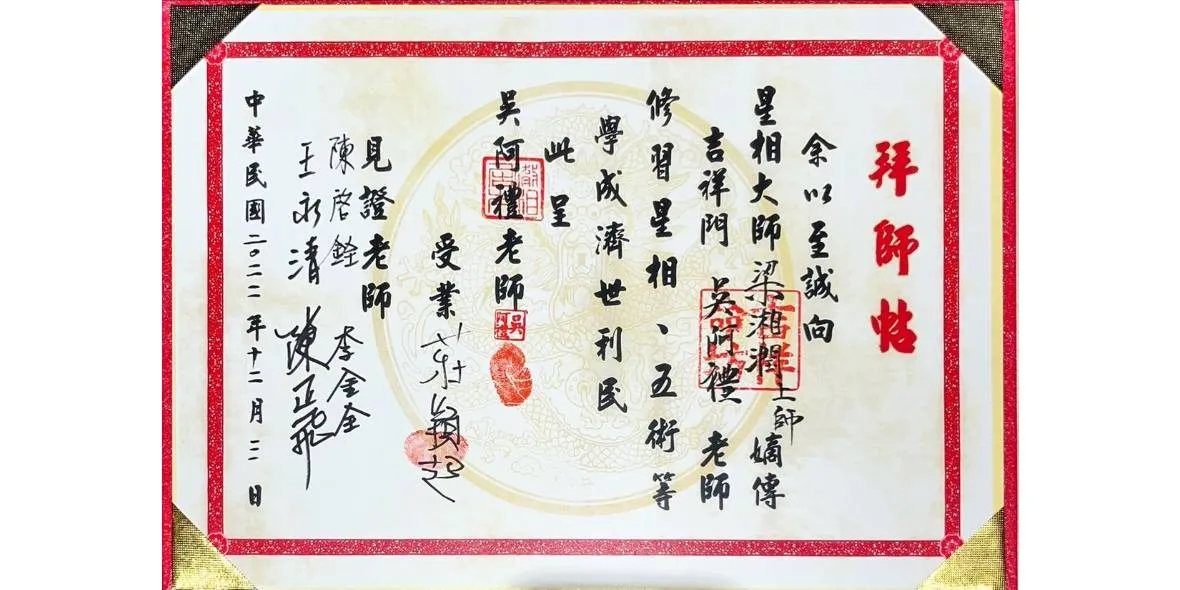 拜師帖
余以至誠向
星相大師梁湘潤上師嫡傳
吉祥門 吳阿禮 老師
修習星相、五術等
學成濟世利民
此呈
吳阿禮老師
吳
受業
見證老師
陳啓銓 李金全
王永清 陳正飛
中華民國二〇二二年十二月二日